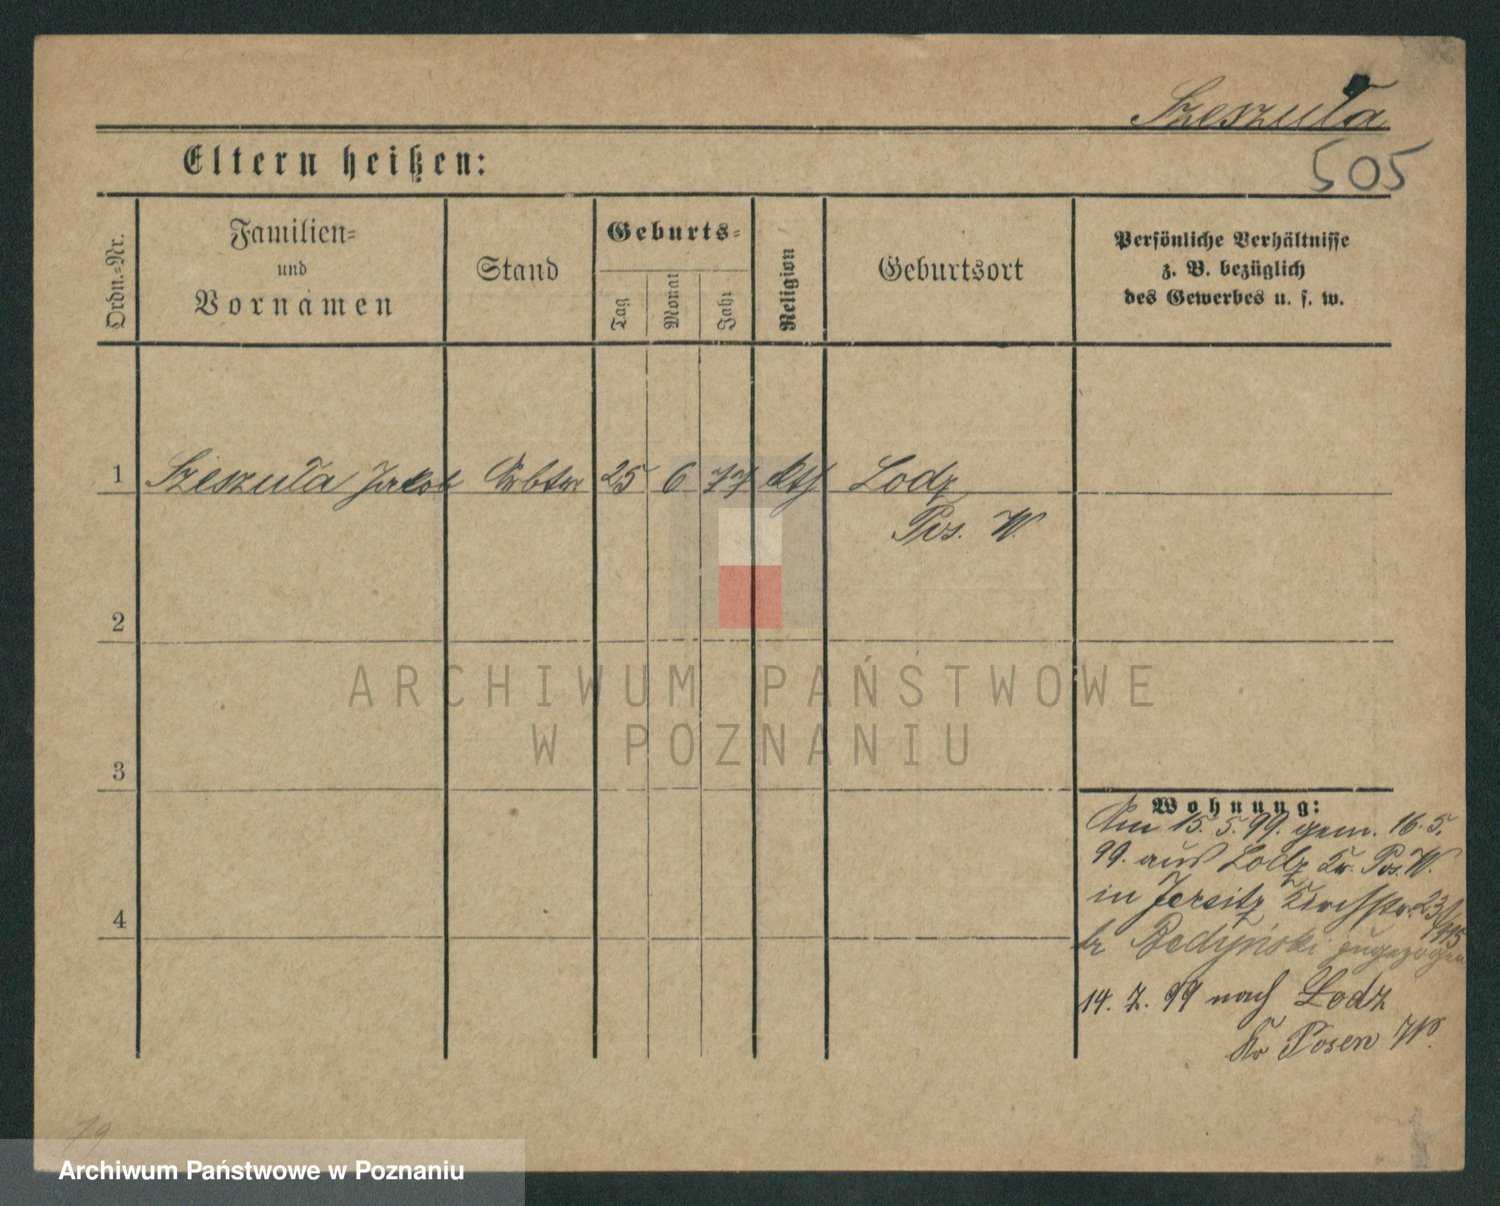 Szeszuła
505
Eltern heißen:
Ordn.-Nr.
Familien-
und
Vornamen
Stand
Geburts-
Tag
Monat
Jahr
Religion
Geburtsort
Persönliche Verhältnisse
z. B. bezüglich
des Gewerbes u. s. w.
1 Szeszuła Jakob Arbtr 25 6 77 kth Lodz
Pos. W.
2
ARCHIWUM PAŃSTWOWE
W POZNANIU
3
Wohnung:
Am 15. 5. 99. gem. 16. 5.
99. aus Lodz Kr. Pos. W.
in Jersitz Kirchstr. 23
br Bedyński zugezogen
4
14. 7. 99 nach Lodz
Kr Posen W.
79
Archiwum Państwowe w Poznaniu